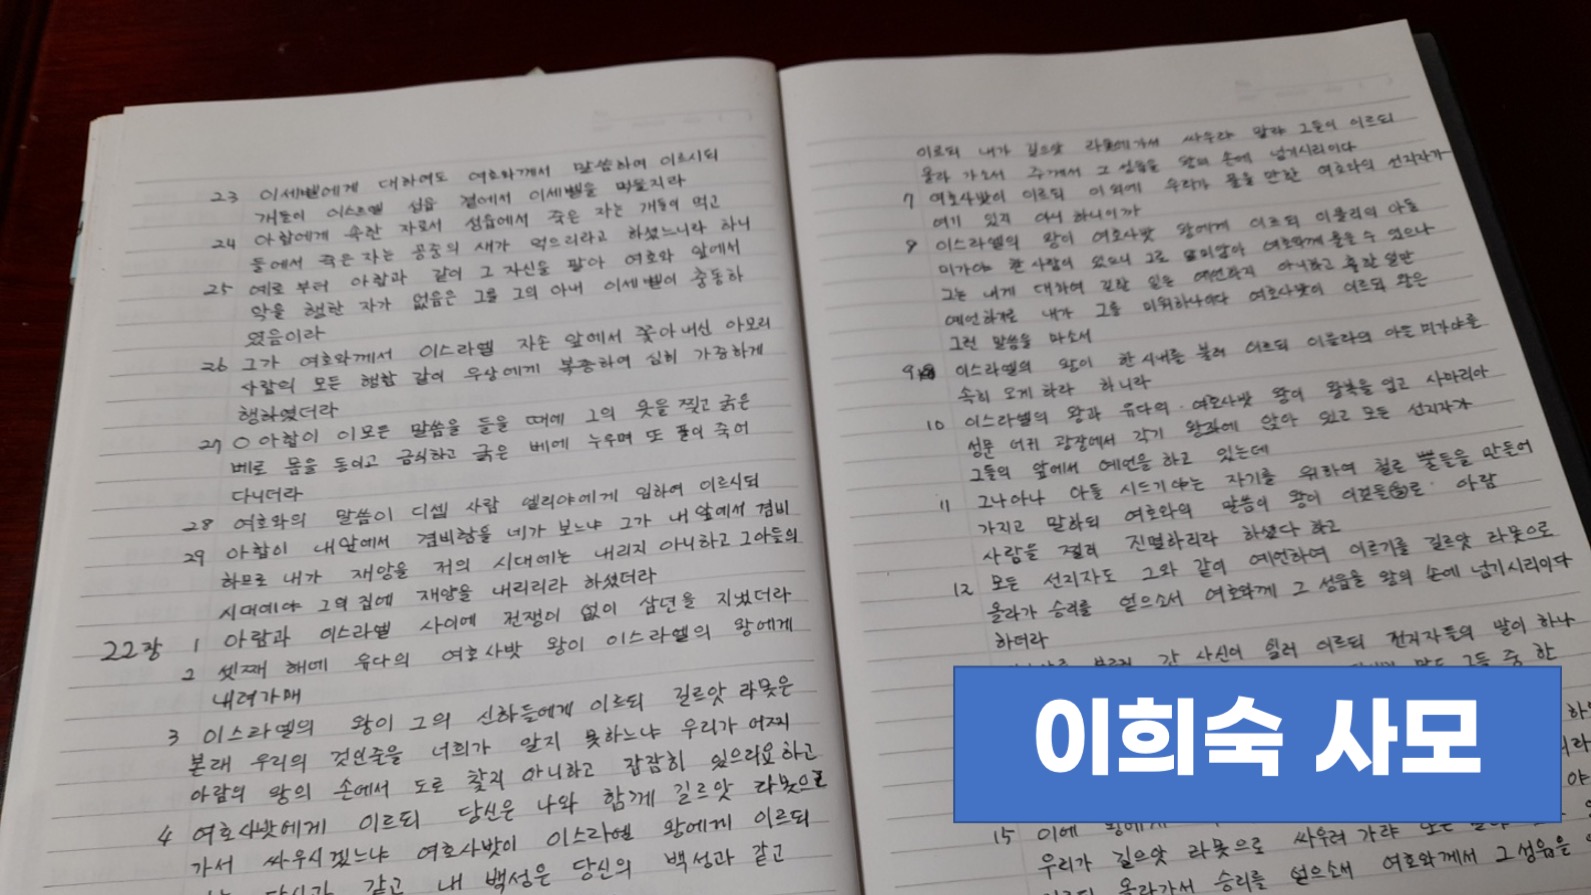 23 이세벨에게 대하여도 여호와께서 말씀하여 이르시되
개들이 이스르엘 성읍 곁에서 이세벨을 먹을지라
24 아합에게 속한 자로서 성읍에서 죽은 자는 개들이 먹고
들에서 죽은 자는 공중의 새가 먹으리라고 하셨느니라 하니
25 예로부터 아합과 같이 그 자신을 팔아 여호와 앞에서
악을 행한 자가 없음은 그를 그의 아내 이세벨이 충동하
였음이라
26 그가 여호와께서 이스라엘 자손 앞에서 쫓아내신 아모리
사람의 모든 행함 같이 우상에게 복종하여 심히 가증하게
행하였더라
27 ○ 아합이 이 모든 말씀을 들을 때에 그의 옷을 찢고 굵은
베로 몸을 동이고 금식하고 굵은 베에 누우며 또 풀이 죽어
다니더라
28 여호와의 말씀이 디셉 사람 엘리야에게 임하여 이르시되
29 아합이 내 앞에서 겸비함을 네가 보느냐 그가 내 앞에서 겸비
하므로 내가 재앙을 저의 시대에는 내리지 아니하고 그 아들의
시대에야 그의 집에 재앙을 내리리라 하셨더라
22장 1 아람과 이스라엘 사이에 전쟁이 없이 삼년을 지냈더라
2 셋째 해에 유다의 여호사밧 왕이 이스라엘의 왕에게
내려가매
3 이스라엘의 왕이 그의 신하들에게 이르되 길르앗 라못은
본래 우리의 것인줄을 너희가 알지 못하느냐 우리가 어찌
아람의 왕의 손에서 도로 찾지 아니하고 잠잠히 있으리요 하고
4 여호사밧에게 이르되 당신은 나와 함께 길르앗 라못으로
가서 싸우시겠느냐 여호사밧이 이스라엘 왕에게 이르되
당신과 같고 내 백성은 당신의 백성과 같고
이르되 내가 길르앗 라못에 가서 싸우랴 말랴 그들이 이르되
올라 가소서 주께서 그 성읍을 왕의 손에 넘기시리이다
7 여호사밧이 이르되 이 외에 우리가 물을 만한 여호와의 선지자가
여기 있지 아니하니이까
8 이스라엘의 왕이 여호사밧 왕에게 이르되 이믈라의 아들
미가야 한 사람이 있으니 그로 말미암아 여호와께 물을 수 있으나
그는 내게 대하여 길한 일은 예언하지 아니하고 흉한 일만
예언하기로 내가 그를 미워하나이다 여호사밧이 이르되 왕은
그런 말씀을 마소서
9 이스라엘의 왕이 한 내시를 불러 이르되 이믈라의 아들 미가야를
속히 오게 하라 하니라
10 이스라엘의 왕과 유다의 여호사밧 왕이 왕복을 입고 사마리아
성문 어귀 광장에서 각기 왕좌에 앉아 있고 모든 선지자가
그들의 앞에서 예언을 하고 있는데
11 그나아나 아들 시드기야는 자기를 위하여 철로 뿔들을 만들어
가지고 말하되 여호와의 말씀이 왕이 이것들로 아람
사람을 찔러 진멸하리라 하셨다 하고
12 모든 선지자도 그와 같이 예언하여 이르기를 길르앗 라못으로
올라가 승리를 얻으소서 여호와께 그 성읍을 왕의 손에 넘기시리이다
하더라
부르러 간 사신이 일러 이르되 선지자들의 말이 하나
그들 중 한
이희숙 사모
15 이에 왕에게
우리가 길르앗 라못으로 싸우러 가랴
올라가서 승리를 얻으소서 여호와께서 그 성읍을